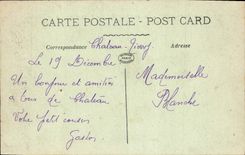 CARTE POSTALE - POST CARD
Correspondance Adresse
Chateau-Thierry
Le 19 Décembre
Un bonjour et amitiés
à tous de Chateau
Votre petit cousin
Gaston
Mademoiselle
Blanche